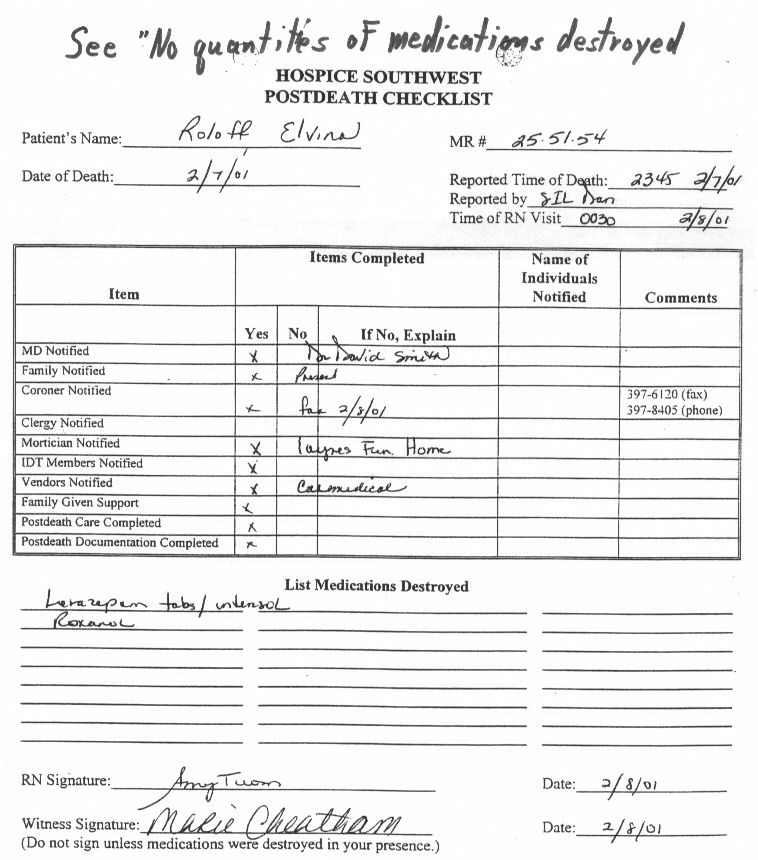 See "No quantities of medications destroyed
HOSPICE SOUTHWEST
POSTDEATH CHECKLIST
Patient's Name: Roloff Elvina
MR # 25.51.54
Date of Death: 2/7/01
Reported Time of Death: 2345 2/7/01
Reported by SIL Dan
Time of RN Visit 0030 2/8/01
Items Completed
Name of
Individuals
Notified
Item
Comments
Yes No If No, Explain
MD Notified x Dr David Smith
Family Notified x Present
Coroner Notified x fax 2/8/01
397-6120 (fax)
397-8405 (phone)
Clergy Notified
Mortician Notified x Laynes Fun. Home
IDT Members Notified x
Vendors Notified x Caremedical
Family Given Support x
Postdeath Care Completed x
Postdeath Documentation Completed x
List Medications Destroyed
Lorazepam tabs/ intensol
Roxanol
RN Signature: Amy Date: 2/8/01
Witness Signature: Marie Cheatham Date: 2/8/01
(Do not sign unless medications were destroyed in your presence.)